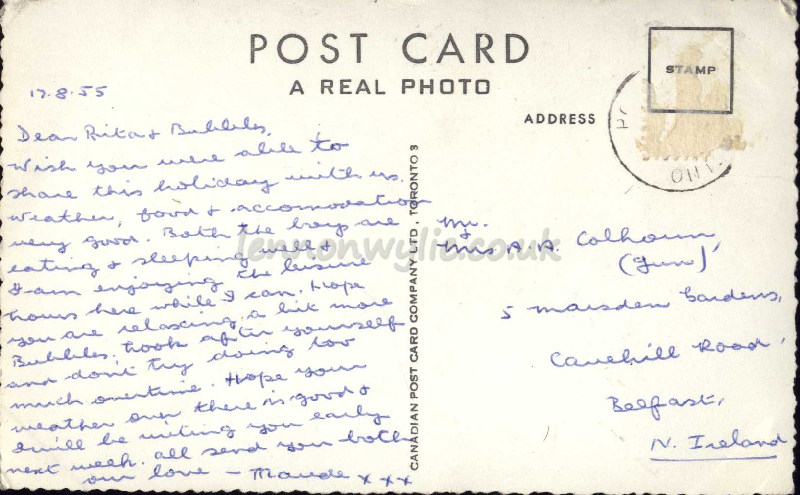 POST CARD
A REAL PHOTO
17.8.55
Dear Rita & Bubbles,
Wish you were able to
share this holiday with us.
Weather, food & accomodation
very good. Both the boys are
eating & sleeping well &
I am enjoying the leisure
hours here while I can. Hope
you are relaxing a bit more
Bubbles, look after yourself
and don't try doing too
much overtime. Hope your
weather over there is good &
I will be writing you early
next week. All send you both
our love - Maude x x x
CANADIAN POST CARD COMPANY LTD. TORONTO 3
STAMP
ADDRESS
ONT.
Mr.
&
Mrs A. A. Calhoun
(Jun)
5 Marsden Gardens,
Cavehill Road,
Belfast,
N. Ireland
lennonwylie.co.uk